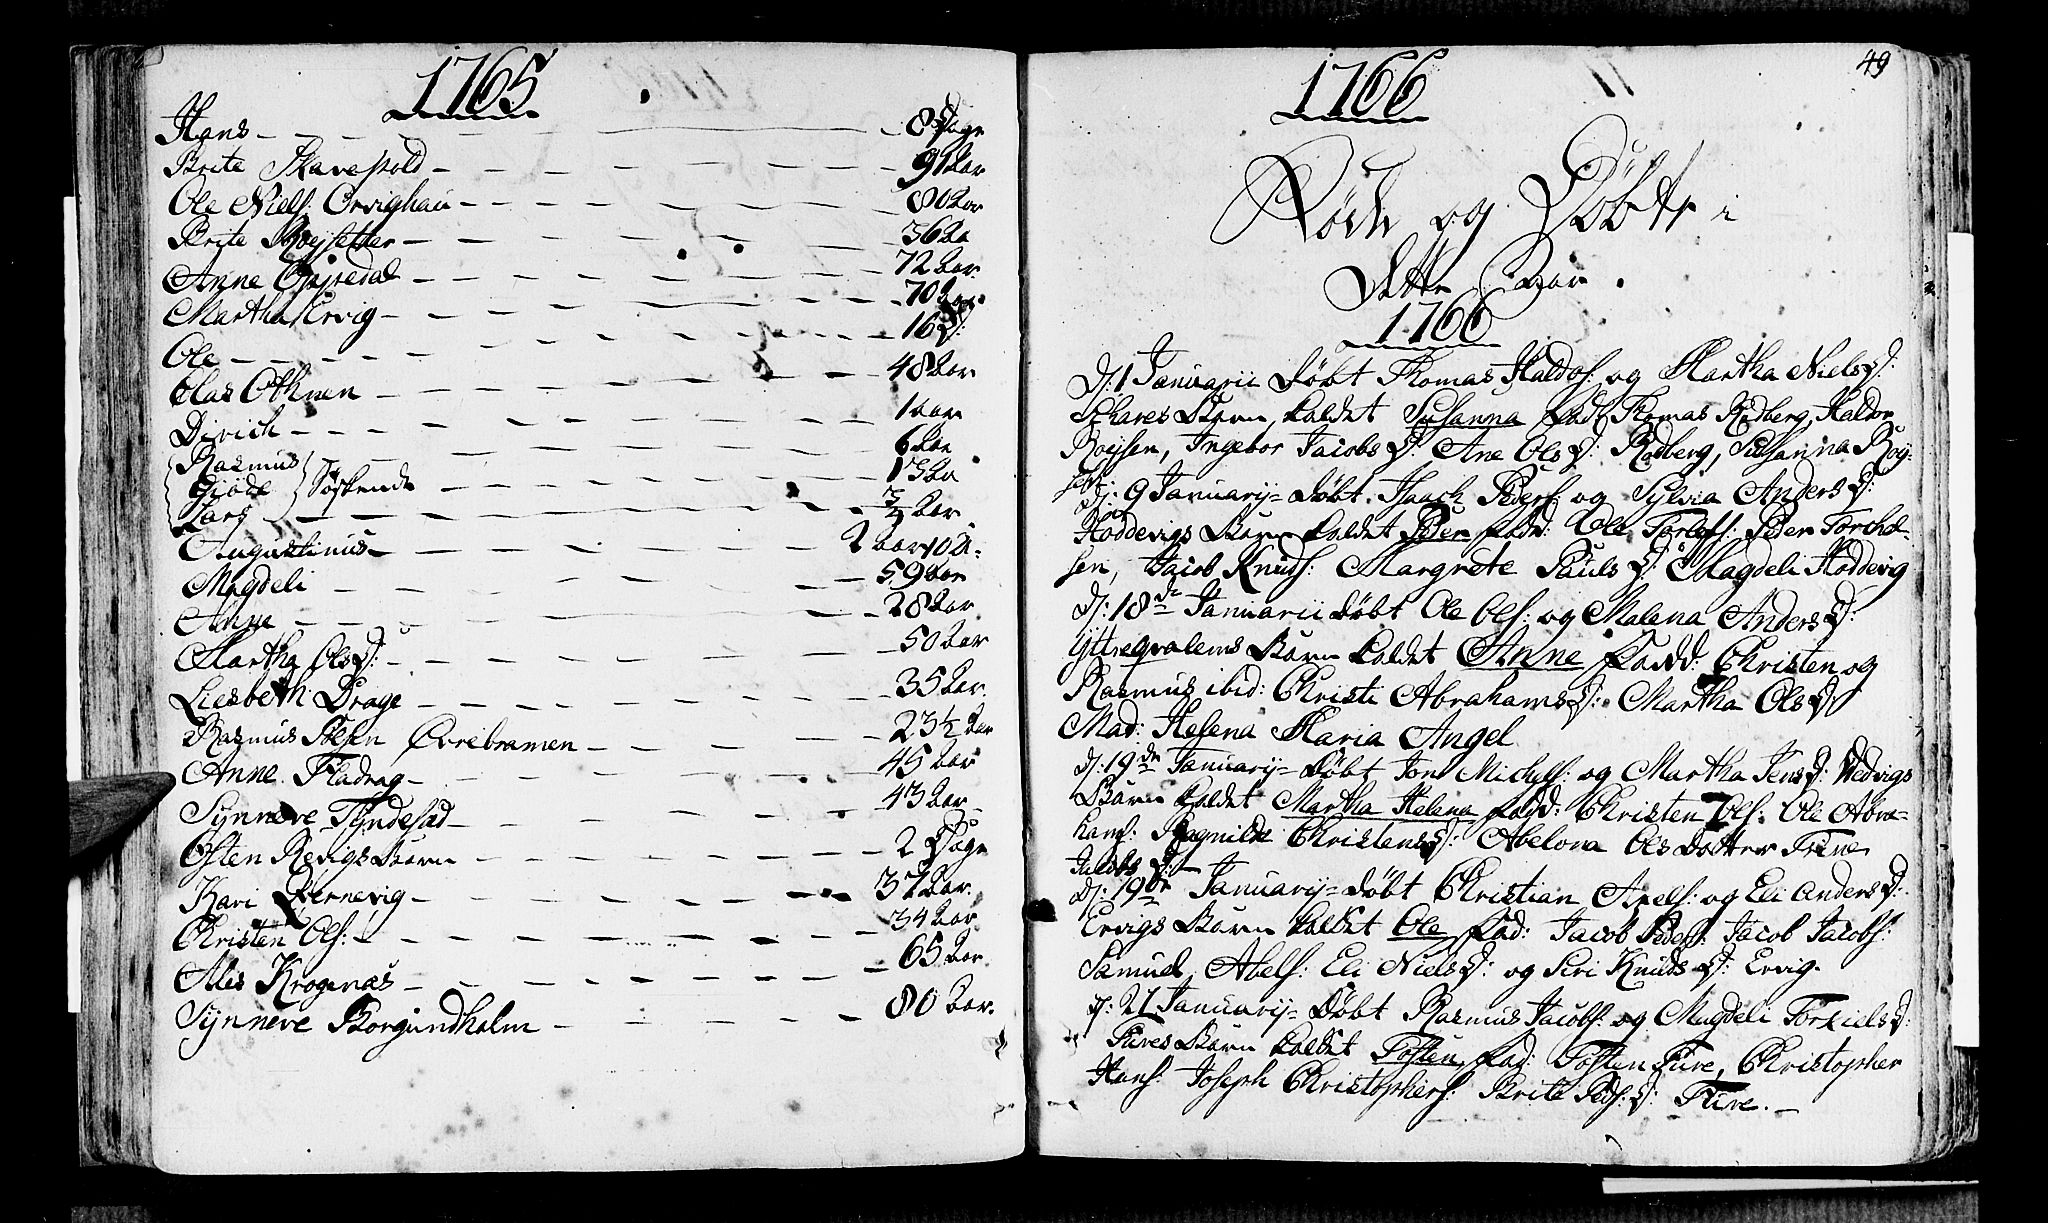 1765
Hans - - - 8 Dage
Brite - - - 91 Aar
Ole Niels: Orvighau - - - 80 Aar
Brite Røysetter - - - 36 Aa
Anne - - - 72 Aar
Martha Ervig - - - 70 Aar
Ole - - - 16 D:
Elas - - - 48 Aar
Divich - - - 1 Aar
Rasmus - - - 6 Aar
Giøde } Søskende - - - 13 Aa
Lars - - - Aar
Augustinus - - - 2 Aar 10 U:
Magdeli - - - 59 Aar
Anne - - - 28 Aar
Martha Ols D: - - - 50 Aar
Liesbeth Drage - - - 35 Aar.
Rasmus Øvrebramen - - - 23 1/2 Aar
Anne Fladrag - - - 45 Aar
Synneve - - - 43 Aar
Østen Revigs Barn - - - 2 Dage
Kari - - - 37 Aar.
Christen Ols: - - - 34 Aar
Ales Krogenæs - - - 65 Aar.
Synneve Borgundholm - - - 80 Aar.
49
1766
Fødde og Døbte i
Dette Aar.
1766
D: 1 Januarii Døbt Thomas Haldos: og Martha Niels D:
Barn kaldet Susanna Fad: Thomas Rødberg, Haldor
Røysen, Ingebor Jacobs D: Ane Ols D: Rødberg, Susanna Røy-
set.
D: 9 Januarij Døbt Isach Peders: og Sylvia Anders D:
Hoddevigs Barn kaldet Peder Fadd: Ole Torlefs: Peder
sen, Jacob Knuds: Margrete Pauls D: Magdeli Hoddevig
D: 18de Januarii Døbt Ole Ols: og Malena Anders D:
Barn kaldet Anne Fadd: Christen og
Rasmus ibid: Christi Abrahams D: Martha Ols D
Mad: Helena Maria Angel
D: 19de Januarij Døbt Jon Michels: og Martha Jens D: Vedvigs
Barn kaldet Martha Helena Fadd: Christen Ols: Ole Abra-
hams: Ragnilde Christens D: Abelona Ols Dotter Trine
Jacobs D:
D: 19de Januarij Døbt Christian Axels: og Eli Anders D:
Ervigs Barn kaldet Ole Fad: Jacob Peders: Jacob Jacobs:
Samuel Abels: Eli Niels D: og Siri Knuds D: Ervig.
D: 21 Januarij Døbt Rasmus Jacobs: og Magdeli Torkiels D:
Fures Barn kaldet Tosten Fad: Tosten Fure, Christopher
Hans: Joseph Christophers: Brite Peds: D: Fure.